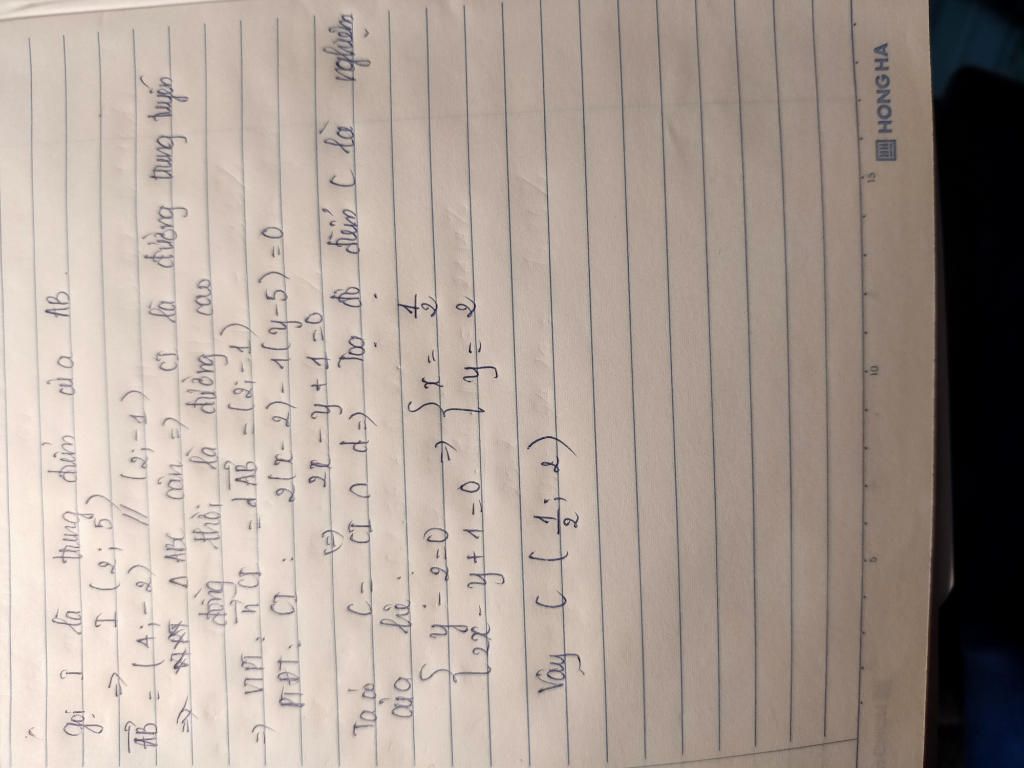 Gọi I là trung điểm của AB.
⇒ I (2; 5)
AB = (4; -2) // (2; -1)
⇒ Δ ABC cân ⇒ CI là đường trung tuyến
đồng thời là đường cao
⇒ VTPT: n CI = AB = (2; -1)
PTĐT: CI: 2(x - 2) - 1(y - 5) = 0
⇔ 2x - y + 1 = 0
Ta có C = CI ∩ d ⇒ Toạ độ điểm C là nghiệm
của hệ:
{ y - 2 = 0 ⇒ { x = 1/2
{ 2x - y + 1 = 0 { y = 2
Vậy C (1/2; 2)
5 10 15
HONG HA